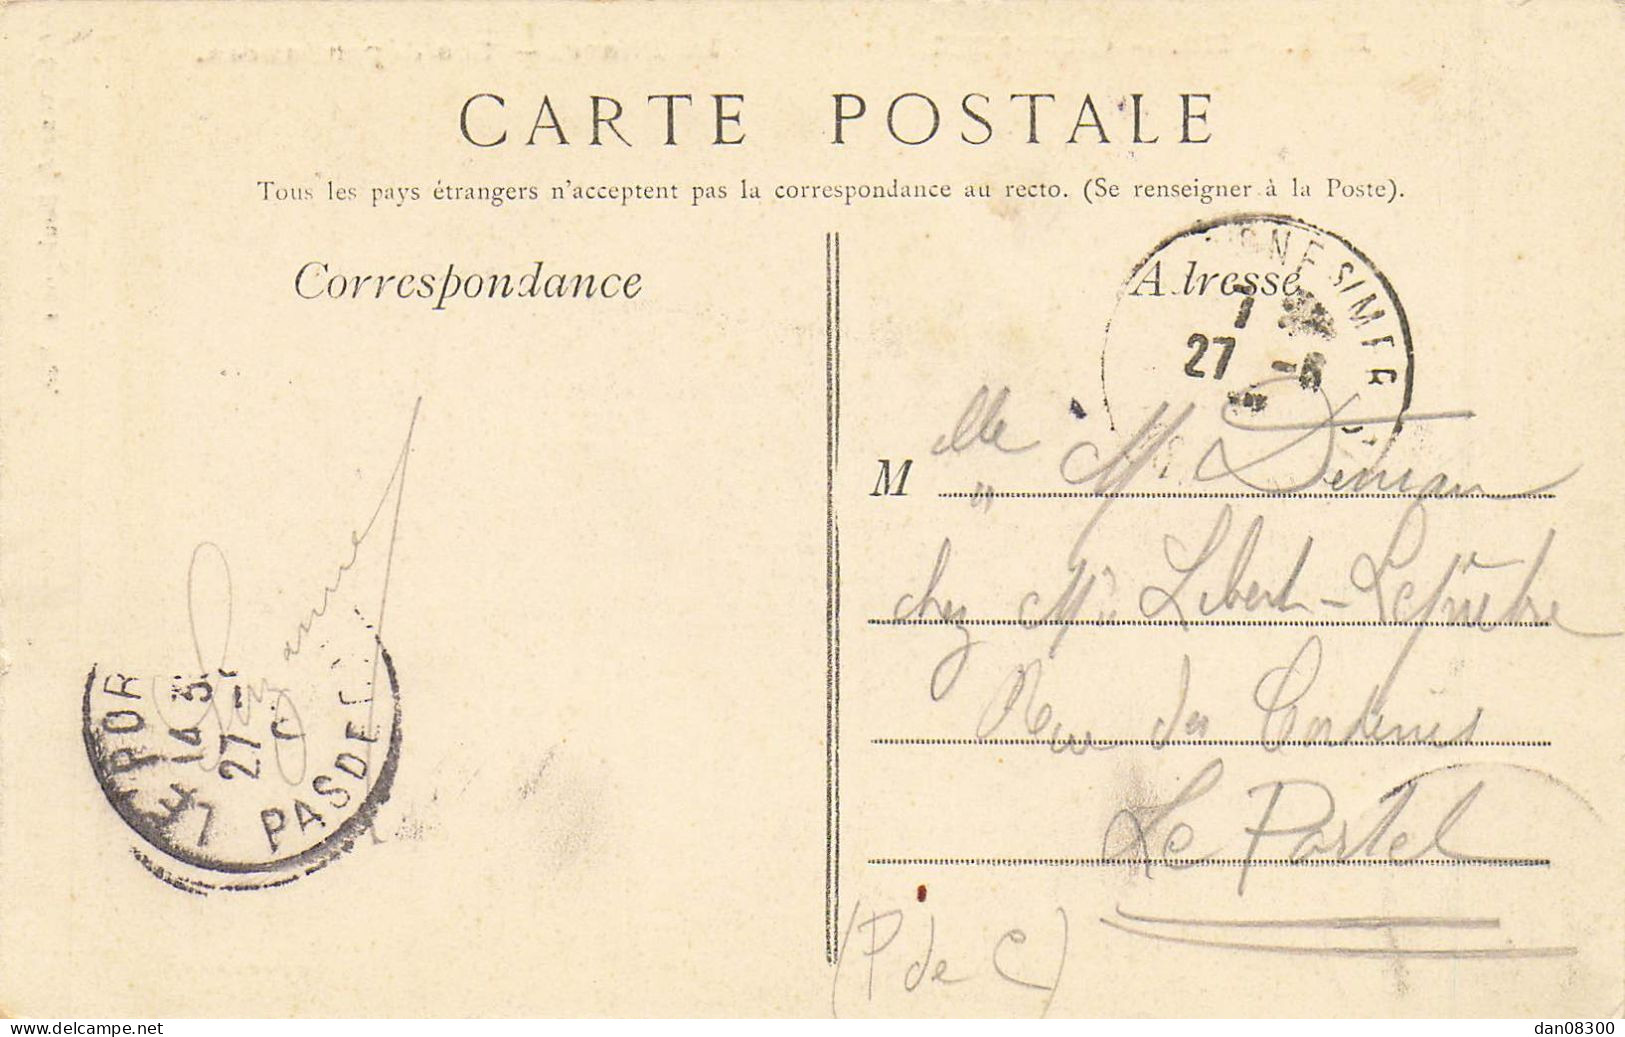 CARTE POSTALE
Tous les pays étrangers n'acceptent pas la correspondance au recto. (Se renseigner à la Poste).
Correspondance
Adresse
GNE S/MER
7
27 -6
M elle M.
chez Mr Libert-Lefebvre
Rue des
Le Portel
(P de C)
LE PORTEL
14 3
27 -
PAS DE C
delcampe.net
dan08300